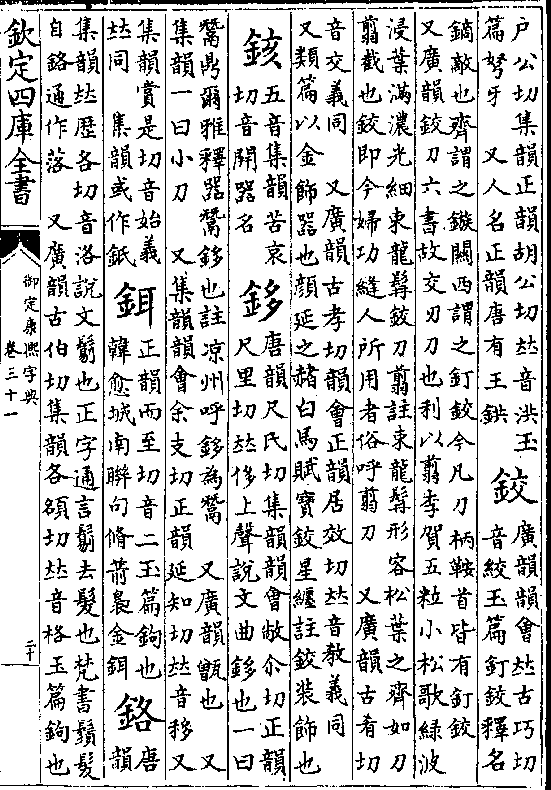 户公切集韻正韻胡公切𠀤音洪玉
篇弩牙 又人名正韻唐有王鉷
鉸
廣韻韻會𠀤古巧切
音絞玉篇釘鉸釋名
鏑敵也齊謂之鏃關西謂之釘鉸今凡刀柄鞍首皆有釘鉸
又廣韻鉸刀六書故交刃刀也利以翦李賀五粒小松歌綠波
浸葉滿濃光細束龍髯鉸刀翦註束龍髯形容松葉之齊如刀
翦截也鉸即今婦功縫人所用者俗呼翦刀 又廣韻古肴切
音交義同 又廣韻古孝切韻會正韻居效切𠀤音教義同
又類篇以金飾器也顏延之赭白馬賦寶鉸星纏註鉸装飾也
䤤
五音集韻苦哀
切音開器名
鉹
唐韻尺氏切集韻韻會敞尒切正韻
尺里切𠀤侈上聲說文曲鉹也一曰
鬵鼎爾雅釋器鬵鉹也註凉州呼鉹為鬵 又廣韻甑也 又
集韻一曰小刀 又集韻韻會余支切正韻延知切𠀤音移又
集韻賞是切音始義
𠀤同 集韻或作
鉺
正韻而至切音二玉篇鉤也
韓愈城南聯句脩箭裊金鉺
鉻
唐
韻
集韻𠀤歷各切音洛說文鬄也正字通言鬄去髮也梵書鬚髮
自鉻通作落 又廣韻古伯切集韻各額切𠀤音格玉篇鉤也
欽定四庫全書
御定康熙字典
卷三十一
二十